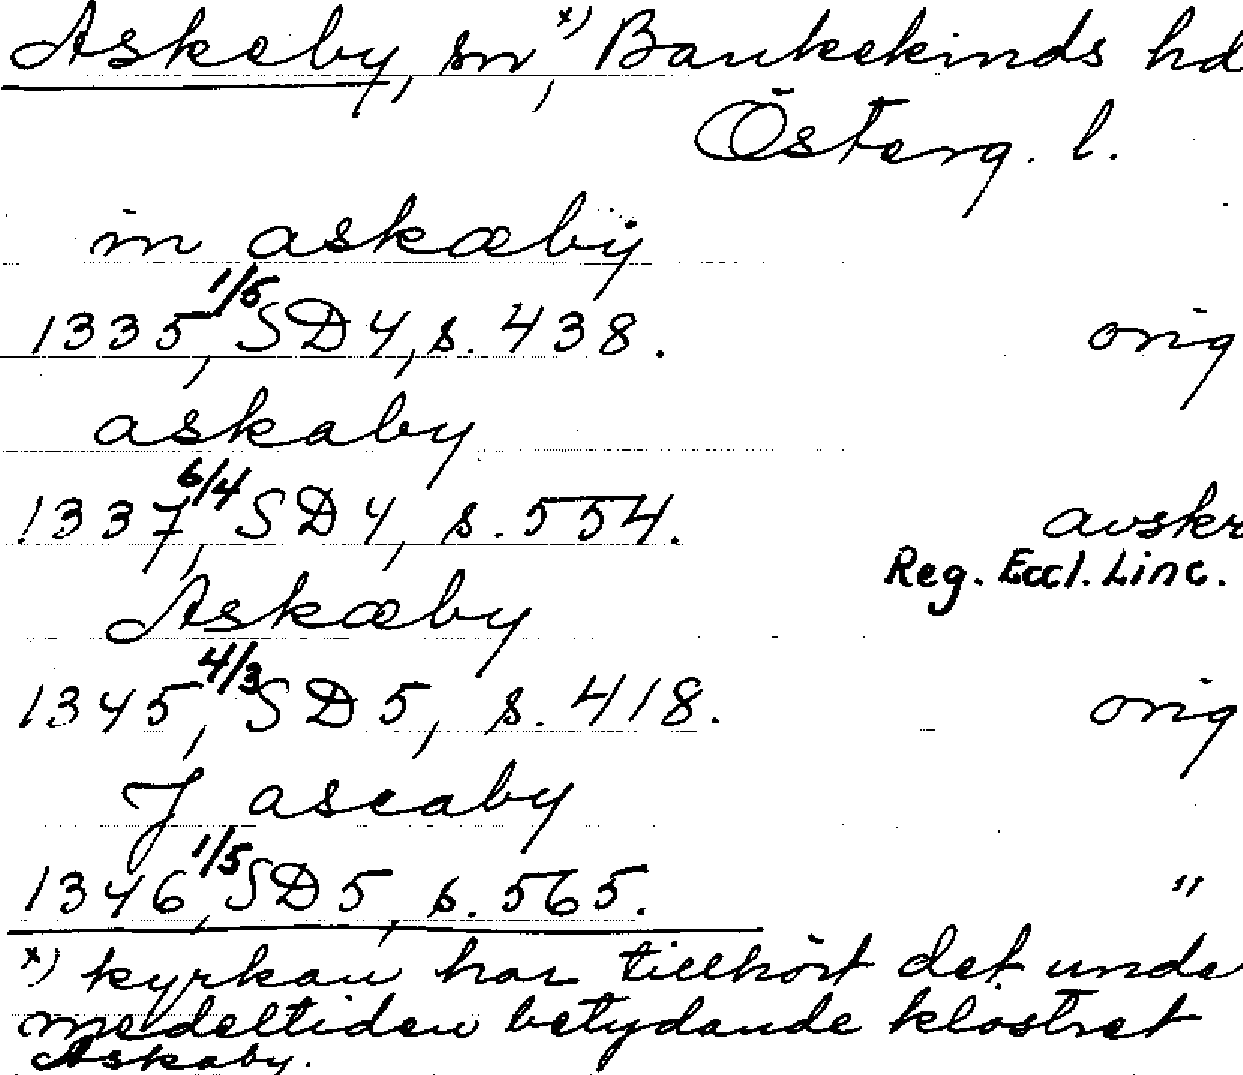 Askeby, sn, x) Bankekinds hd
Österg. l.
in askæby
1335, 1/5 SD 4, s. 438. orig
askaby
1337, 6/4 SD 4, s. 554. avskr
Reg. Eccl. Linc.
Askæby
1345, 4/3 SD 5, s. 418. orig
J ascaby
1346, 1/5 SD 5, s. 565. "
x) kyrkan har tillhört det unde
medeltiden betydande klostret
Askaby.